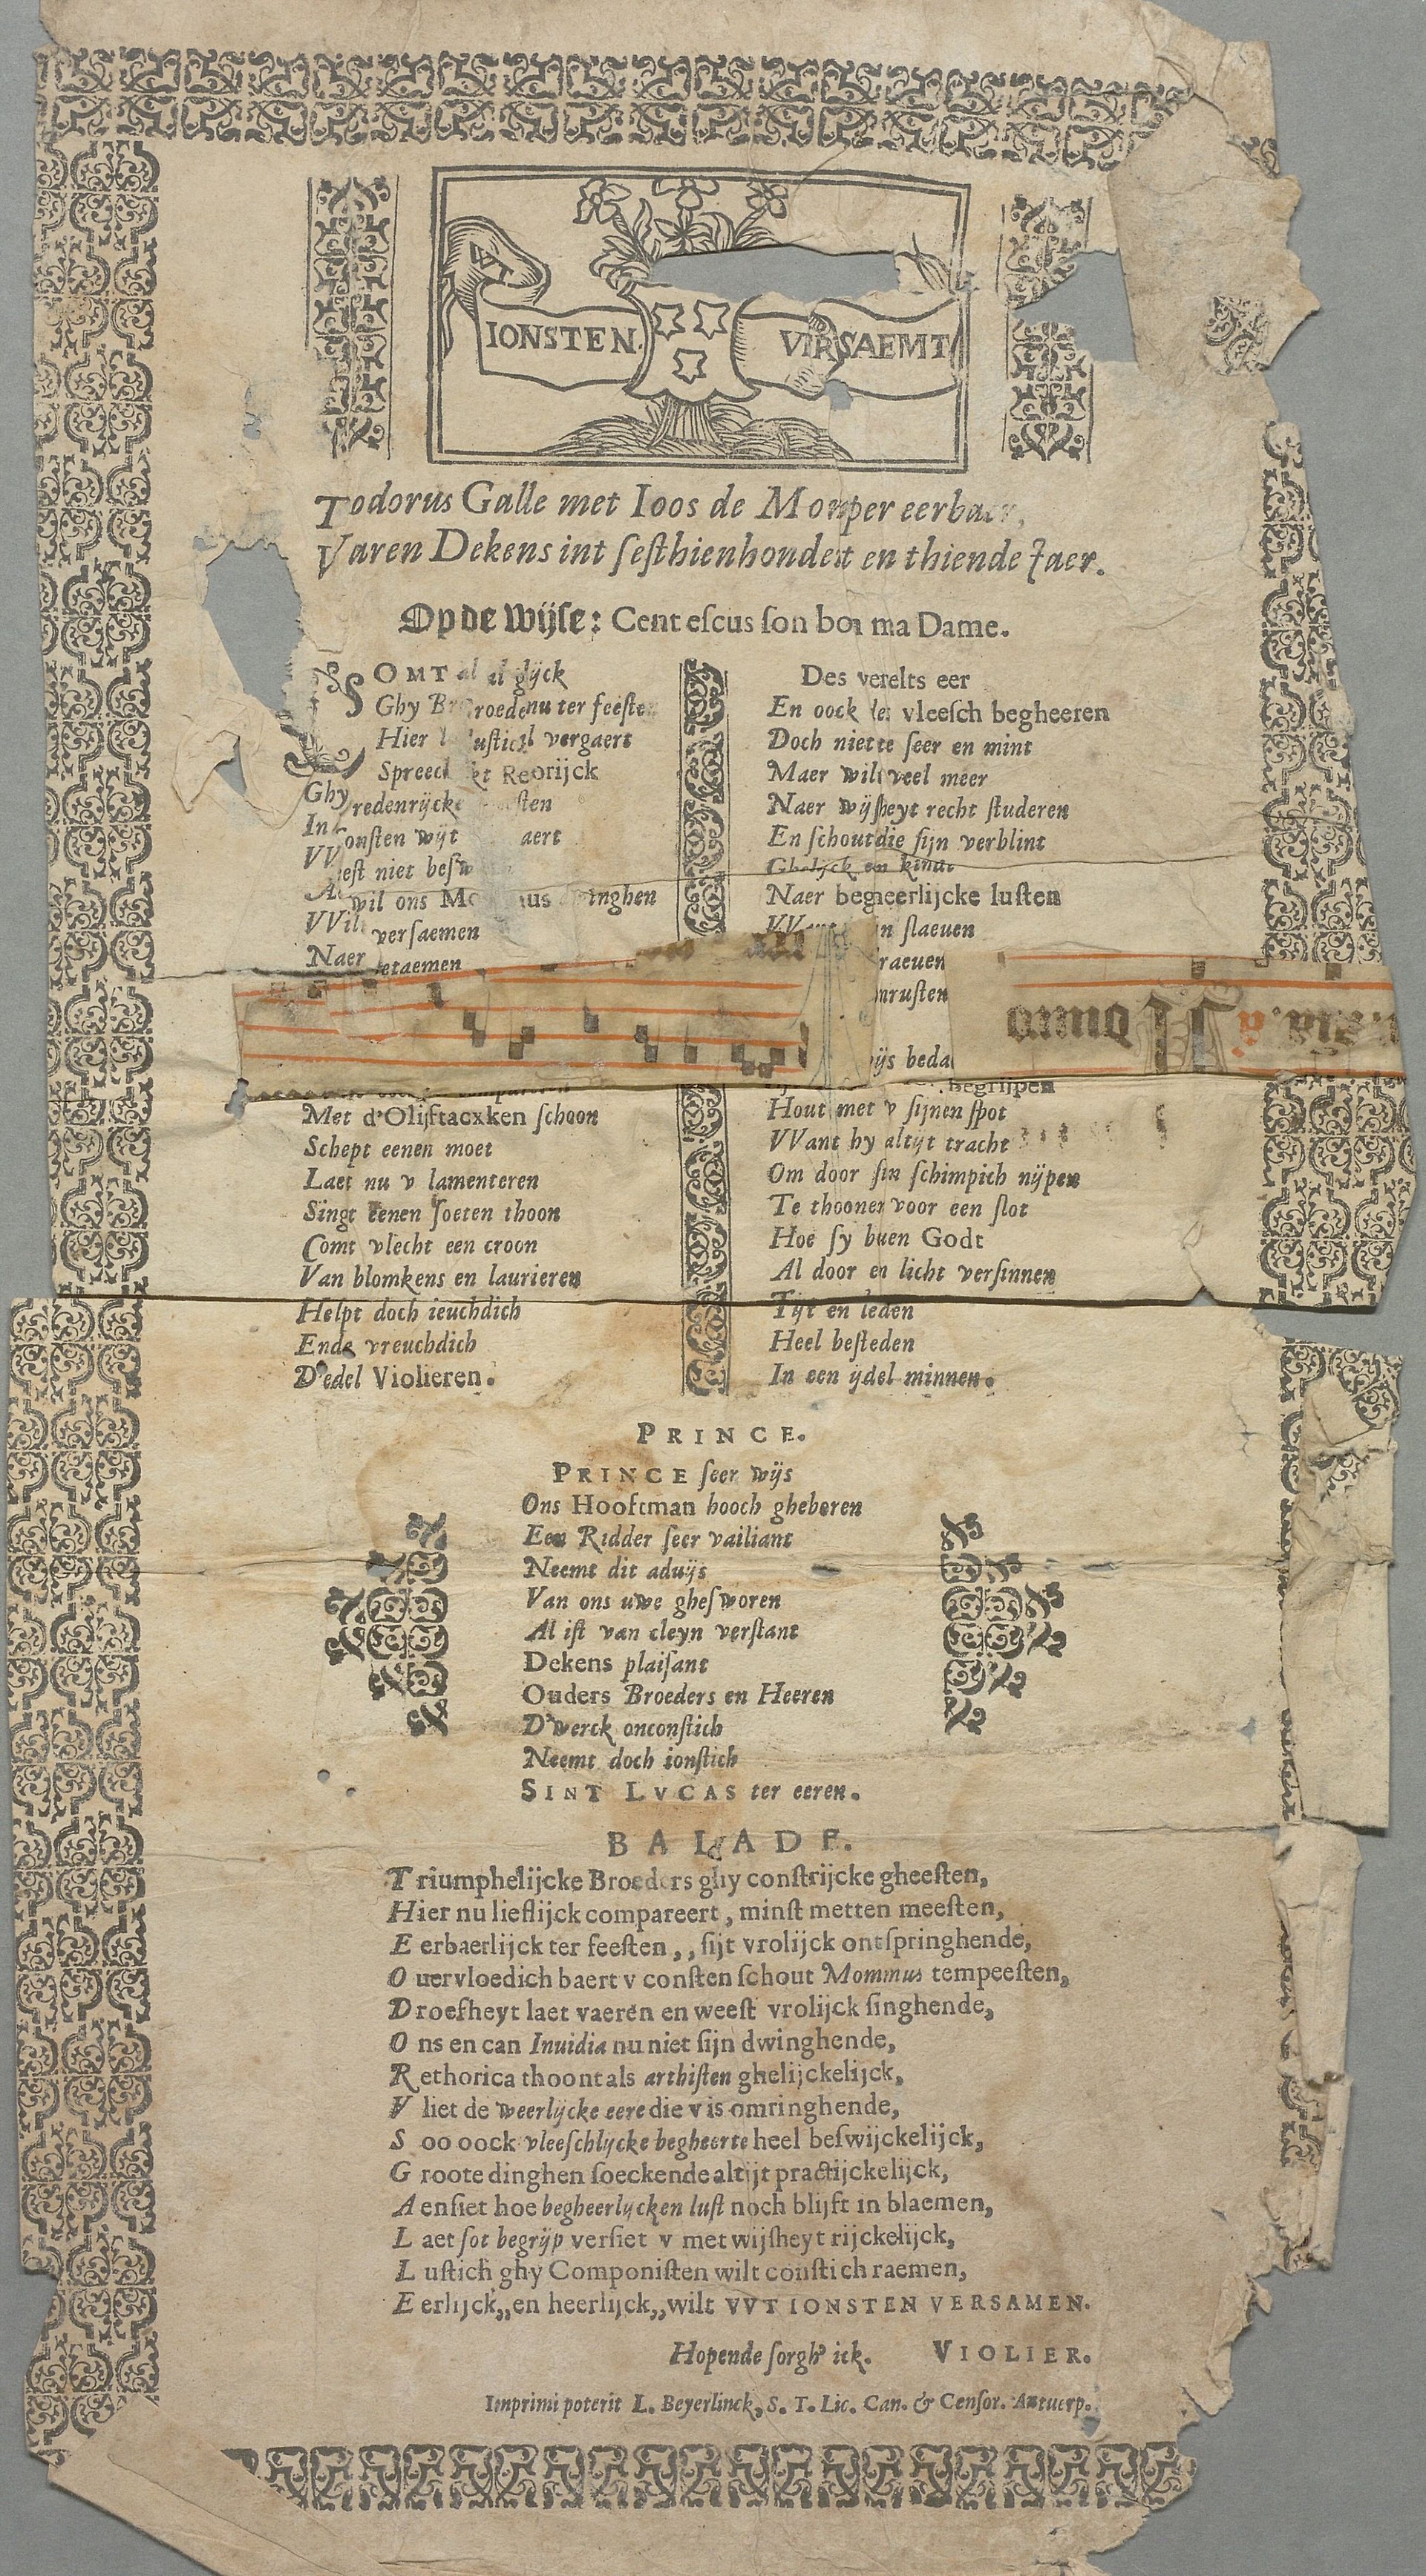 IONSTEN VIRSAEMT
Todorus Galle met Ioos de Momper eerbaer,
Varen Dekens int sesthienhondert en thiende Jaer.
Op de wijse: Cent escus son bor ma Dame.
SOMT al glijck
Ghy Broeders nu ter feesten
Hier lustich vergaert
Spreeckt Retorijck
Ghy redenrijcke
In consten wijt
VVeest niet
Al wil ons Mommus
VVilt versaemen
Naer betaemen
Met d'Olijftacxken schoon
Schept eenen moet
Laet nu v lamenteren
Singt eenen soeten thoon
Comt vlecht een croon
Van blomkens en laurieren
Helpt doch ieuchdich
Ende vreuchdich
D'edel Violieren.
Des verelts eer
En oock des vleesch begheeren
Doch niet te seer en mint
Maer wilt veel meer
Naer wijsheyt recht studeren
En schout die sijn verblint
Ghelijck een kindt
Naer begheerlijcke lusten
slaeuen
begrijpen
Hout met v sijnen spot
VVant hy altijt tracht
Om door sijn schimpich nijpen
Te thoonen voor een slot
Hoe sy buen Godt
Al door en licht versinnen
Tijt en leden
Heel besteden
In een ijdel minnen.
PRINCE.
PRINCE seer wijs
Ons Hooftman hooch gheboren
Een Ridder seer vailiant
Neemt dit aduijs
Van ons uwe ghesworen
Al ist van cleyn verstant
Dekens plaisant
Ouders Broeders en Heeren
D'werck onconstich
Neemt doch ionstich
SINT LVCAS ter eeren.
BALADE.
Triumphelijcke Broeders ghy constrijcke gheesten,
Hier nu lieflijck compareert, minst metten meesten,
Eerbaerlijck ter feesten,, sijt vrolijck ontspringhende,
Ouervloedich baert v consten schout Mommus tempeesten,
Droefheyt laet vaeren en weest vrolijck singhende,
Ons en can Inuidia nu niet sijn dwinghende,
Rethorica thoont als arthisten ghelijckelijck,
Vliet de weerlijcke eere die v is omringhende,
Soo oock vleeschlijcke begheerte heel beswijckelijck,
Groote dinghen soeckende altijt practijckelijck,
Aensiet hoe begheerlijcken lust noch blijft in blaemen,
Laet sot begrijp versiet v met wijsheyt rijckelijck,
Lustich ghy Componisten wilt constich raemen,
Eerlijck,, en heerlijck,, wilt VVT IONSTEN VERSAMEN.
Hopende sorgh' ick. VIOLIER.
Imprimi poterit L. Beyerlinck, S. T. Lic. Can. & Censor. Antuerp.